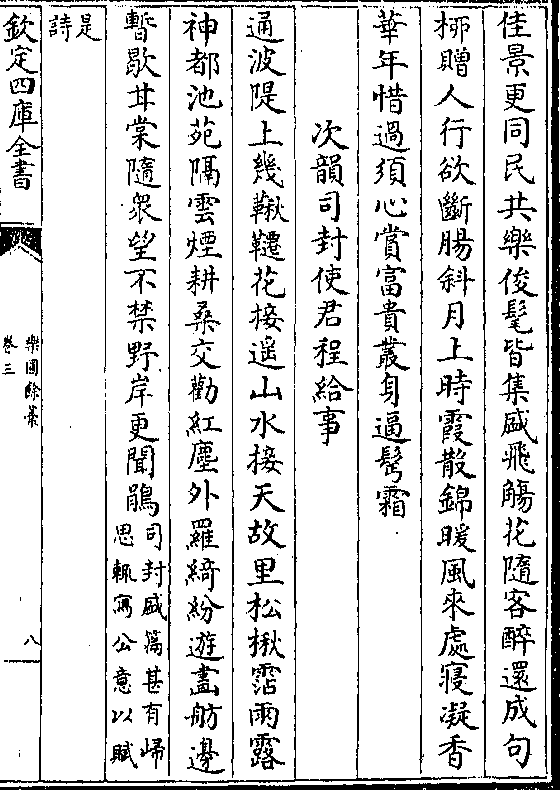 佳景更同民共樂俊髦皆集盛飛觴花隨客醉還成句
栁贈人行欲斷腸斜月上時霞散錦暖風來處寢凝香
華年惜過須心賞富貴叢身逼鬂霜
次韻司封使君程給事
通波隄上幾鞦韆花接遥山水接天故里松楸霑雨露
神都池苑隔雲煙耕桑交勸紅塵外羅綺紛遊畫舫邊
暫歇甘棠隨衆望不禁野岸更聞鵑司封盛篇甚有歸
思輒寫公意以賦
是
詩
欽定四庫全書
樂圃餘藁
卷三
八